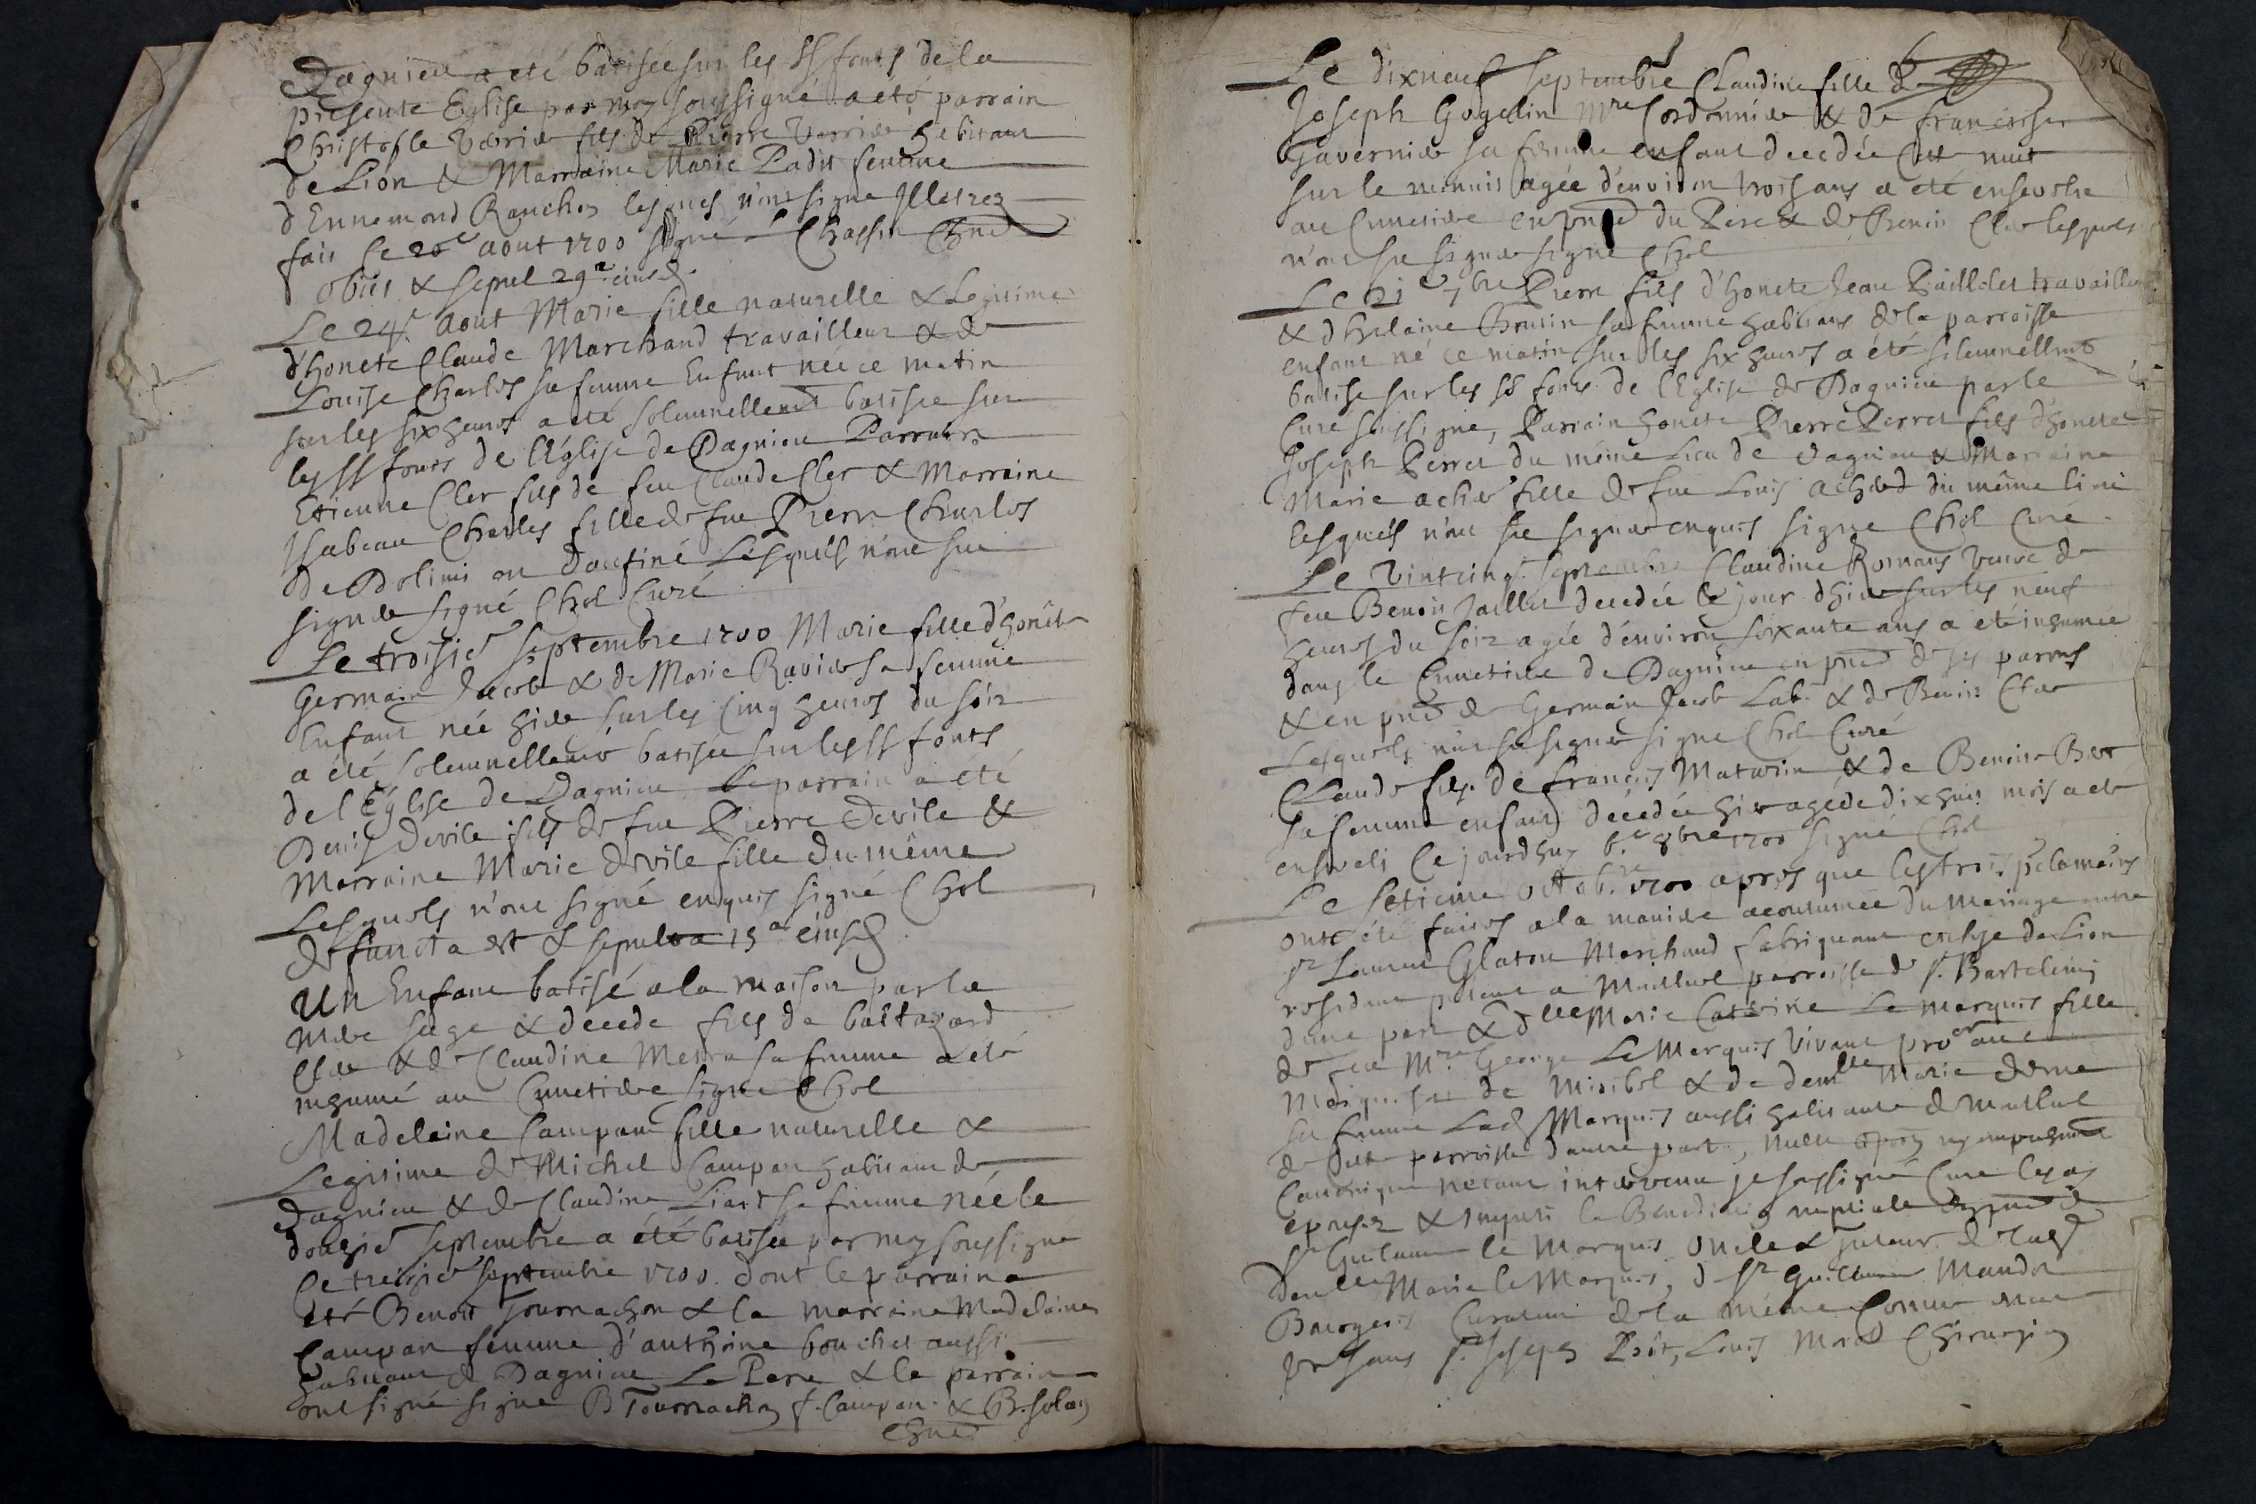 Dagnieu a été batisée sur les SS fonts de la
presente Eglise par moy soussigné a été parrain
Christofle Verrier fils de Pierre Verrier habitant
de Lion & Marraine Marie Padit femme
d'Ennemond Ranchon lesquels n'ont signé Illetrez
fait le 20e aout 1700 signé Chassin
obiit & sepul 29a eiusd
Le 24e Aout Marie fille naturelle & Legitime
d'honete Claude Marchand travailleur & de
Louise Charles sa femme Enfant née ce matin
sur les six heures a été solemnellemt batisée sur
les SS fonts de l'Église de Dagnieu Parrain
Etienne Cler fils de feu Claude Cler & Marraine
Isabeau Charles fille de feu Pierre Charles
De en Daufiné Lesquels n'ont sçu
signer signé Chol Curé
Le troisie septembre 1700 Marie fille d'honête
Germain Jacob & de Marie Ravier sa femme
Enfant née hier sur les Cinq heures du soir
a été solemnellemt batisée sur les SS fonts
de l'Église de Dagnieu Le parrain a été
Denis Devile fils de feu Pierre Devile &
Marraine Marie Devile fille du même
Lesquels n'ont signé enquis signé Chol
defuncta est & sepulta 15a eiusd
Un Enfant batisé a la maison par la
mere sage & decedé fils de baltazard
Cler & de Claudine sa femme a été
inhumé au Cimetiere signé Chol
Madelaine Campan fille naturelle &
Legitime de Michel Campan habitant de
Dagnieu & de Claudine Liard sa femme née le
douzie septembre a été batisée par moy soussigné
le treizie septembre 1700. dont le parrain a
été Benoit Tournachon & la marraine Madelaine
Campan femme d'anthoine bouchet aussi
habitant de Dagnieu Le Pere & le parrain
ont signé signé B Tournachon f. Campan &
Le dixneuf septembre Claudine fille de
Joseph Gogelin Mre Cordonnier & de francoise
Gavernier sa femme enfant decedée cette nuit
sur le minuit agée d'environ trois ans a été ensevelie
au Cimetiere en pnce du Pere & de Benoit Cler lesquels
n'ont su signer signé Chol
Le 21e 7bre Pierre fils d'honete Jean Paillet travailleur
& d'helaine sa femme habitans de la parroisse
enfant né ce matin sur les six heures a été solemnellmt
batisé sur les SS fonts de l'Eglise de Dagnieu par le
Curé soussigné, Parrain honete Pierre Perret fils d'honete
Joseph Perret du même Lieu de Dagnieu & Marraine
Marie Achard fille de feu Louis Achard du même lieu
lesquels n'ont sçu signer enquis signé Chol Curé
Le Vintcinq septembre Claudine Romans veuve de
feu Benoit Jaillet decedée le jour d'hier sur les neuf
heures du soir agée d'environ soixante ans a été inhumée
dans le Cimetiere de Dagnieu en pnce de ses parens
& en pnce de Germain Jacob Lab. & de Benoit Cler
Lesquels n'ont su signer signé Chol Curé
Claude fils de françois Maturin & de Benoite
sa femme enfant decedée hier agé de dix huit mois a eté
enseveli ce jourdhuy 6.e 8bre 1700 signé Chol
Le Setieme Octob.re 1700 apres que les trois
ont été faites a la maniere acoutumée du mariage entre
sr Laurent Glatou Marchand fabriquant de Lion
residant a parroisse de St. Bartelemi
d'une part & dlle Marie Catherine Le marquis fille
de feu Mre George Le Marquis Vivant
de Miribel & de demlle Marie
sa femme Lad Marquis aussi habitante de
de parroisse d'autre part, nulle
Canonique n'etant intervenu je soussigné Curé les ay
epousez & imparti la Benediction nuptiale
Sr Guilaume le Marquis Oncle & tuteur de lad
demlle Marie le Marquis, d Sr Guillaume
Bourgeois Curateur de la même
presans Sr Joseph, Louis Chirurgien